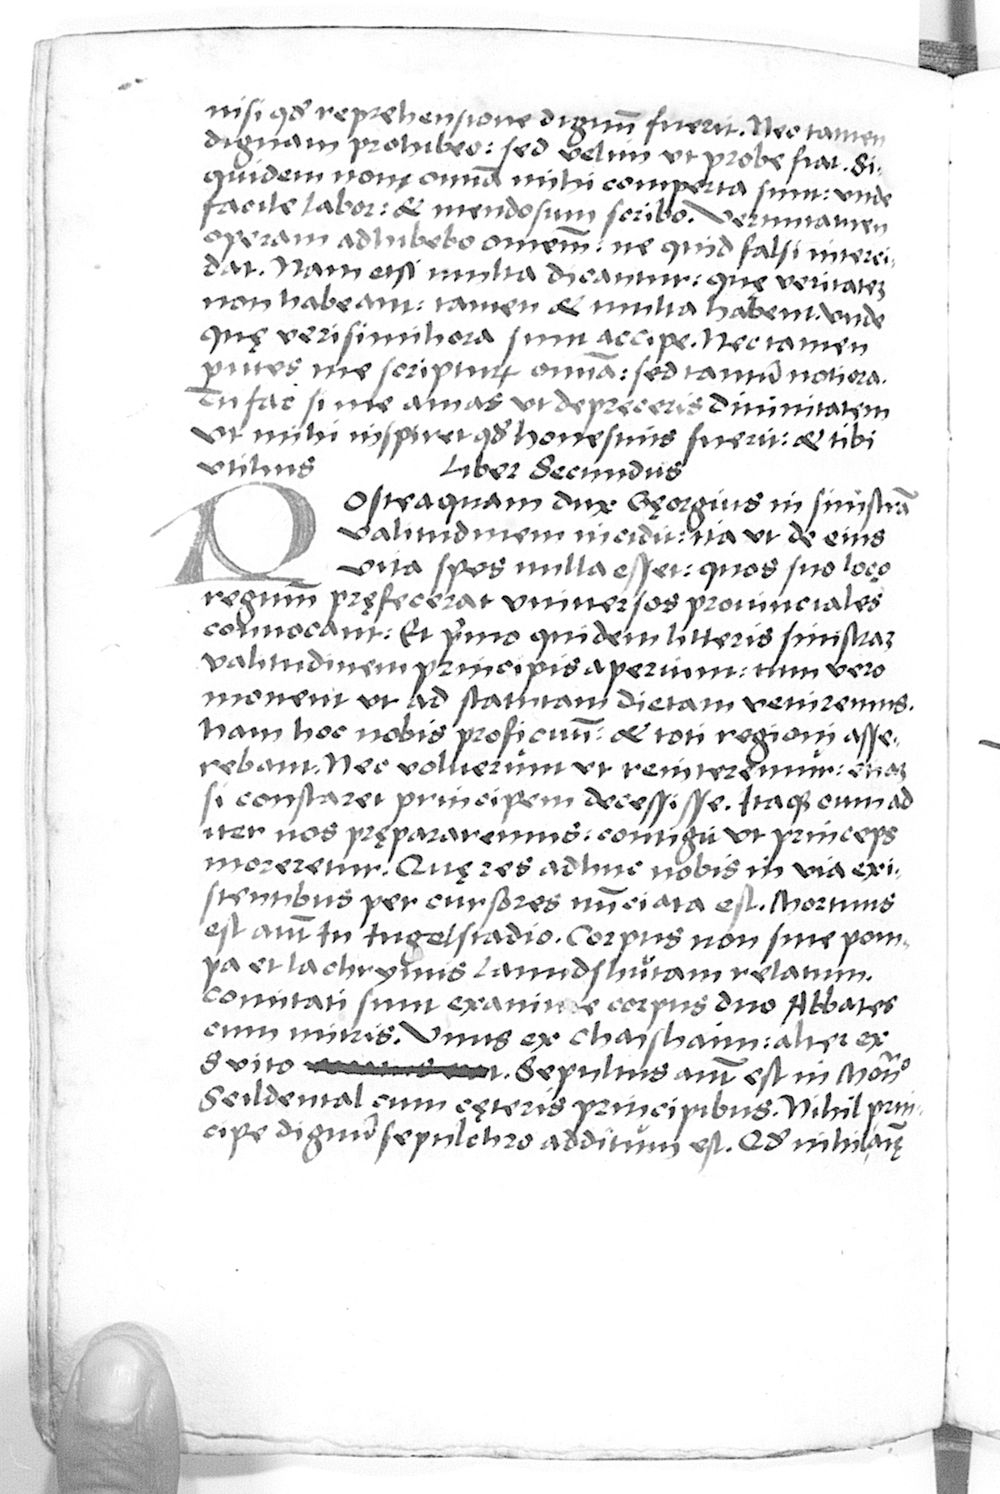 nisi qď reprehensione dignū fuerit. Nec tamen
dignam prohibeo: sed velim vt probe fiat. Si-
quidem non omnia mihi comperta sunt: vnde
facile labor: & mendosum scribo. Verumtamen
operam adhibebo omnem̄: ne quid falsi interci-
dat. Nam etsi multa dicantur: que veritateꝫ
non habeant: tamen & multa habent. vnde
quę verisimiliora sunt accipe. Nec tamen
putes me scripturum omnia: sed tantū notiora.
Tu fac si me amas vt depreceris diuinitatem
vt mihi inspiret qď honestius fuerit: & tibi
vtilius Liber Secundus
Posteaquam dux Gęorgius in sinistrā
valitudinem incidit: ita vt de eius
vita spes nulla esset: quos suo loco
regnū pręfecerat vniuersos prouinciales
conuocant: Et pͥmo quidem litteris sinistraꝫ
valitudinem principis aperiunt: tum vero
monent vt ad statutam dietam veniremus.
Nam hoc nobis proficuū: & toti regioni asse-
rebant. Nec voluerunt vt reniteremur: etiaꝫ
si constaret principem decessisse. Itaqꝫ cum ad
iter nos prępararemus: contigit vt princeps
moreretur. Quę res adhuc nobis in via exi-
stentibus per cursores nūciata est. Mortuus
est aut̄ In Ingelstadio. Corpus non sine pom-
pa et lachrymis Lanndshutam relatum.
Comitati sunt exanime corpus duo Abbates
cum mitris. Vnus ex Chaishaim: alter ex
S vito. Sepultus aut̄ est in Mōn̄o
Seildental cum cęteris principibus. Nihil prin-
cipe dignū sepulchro additum est. Qď nihil